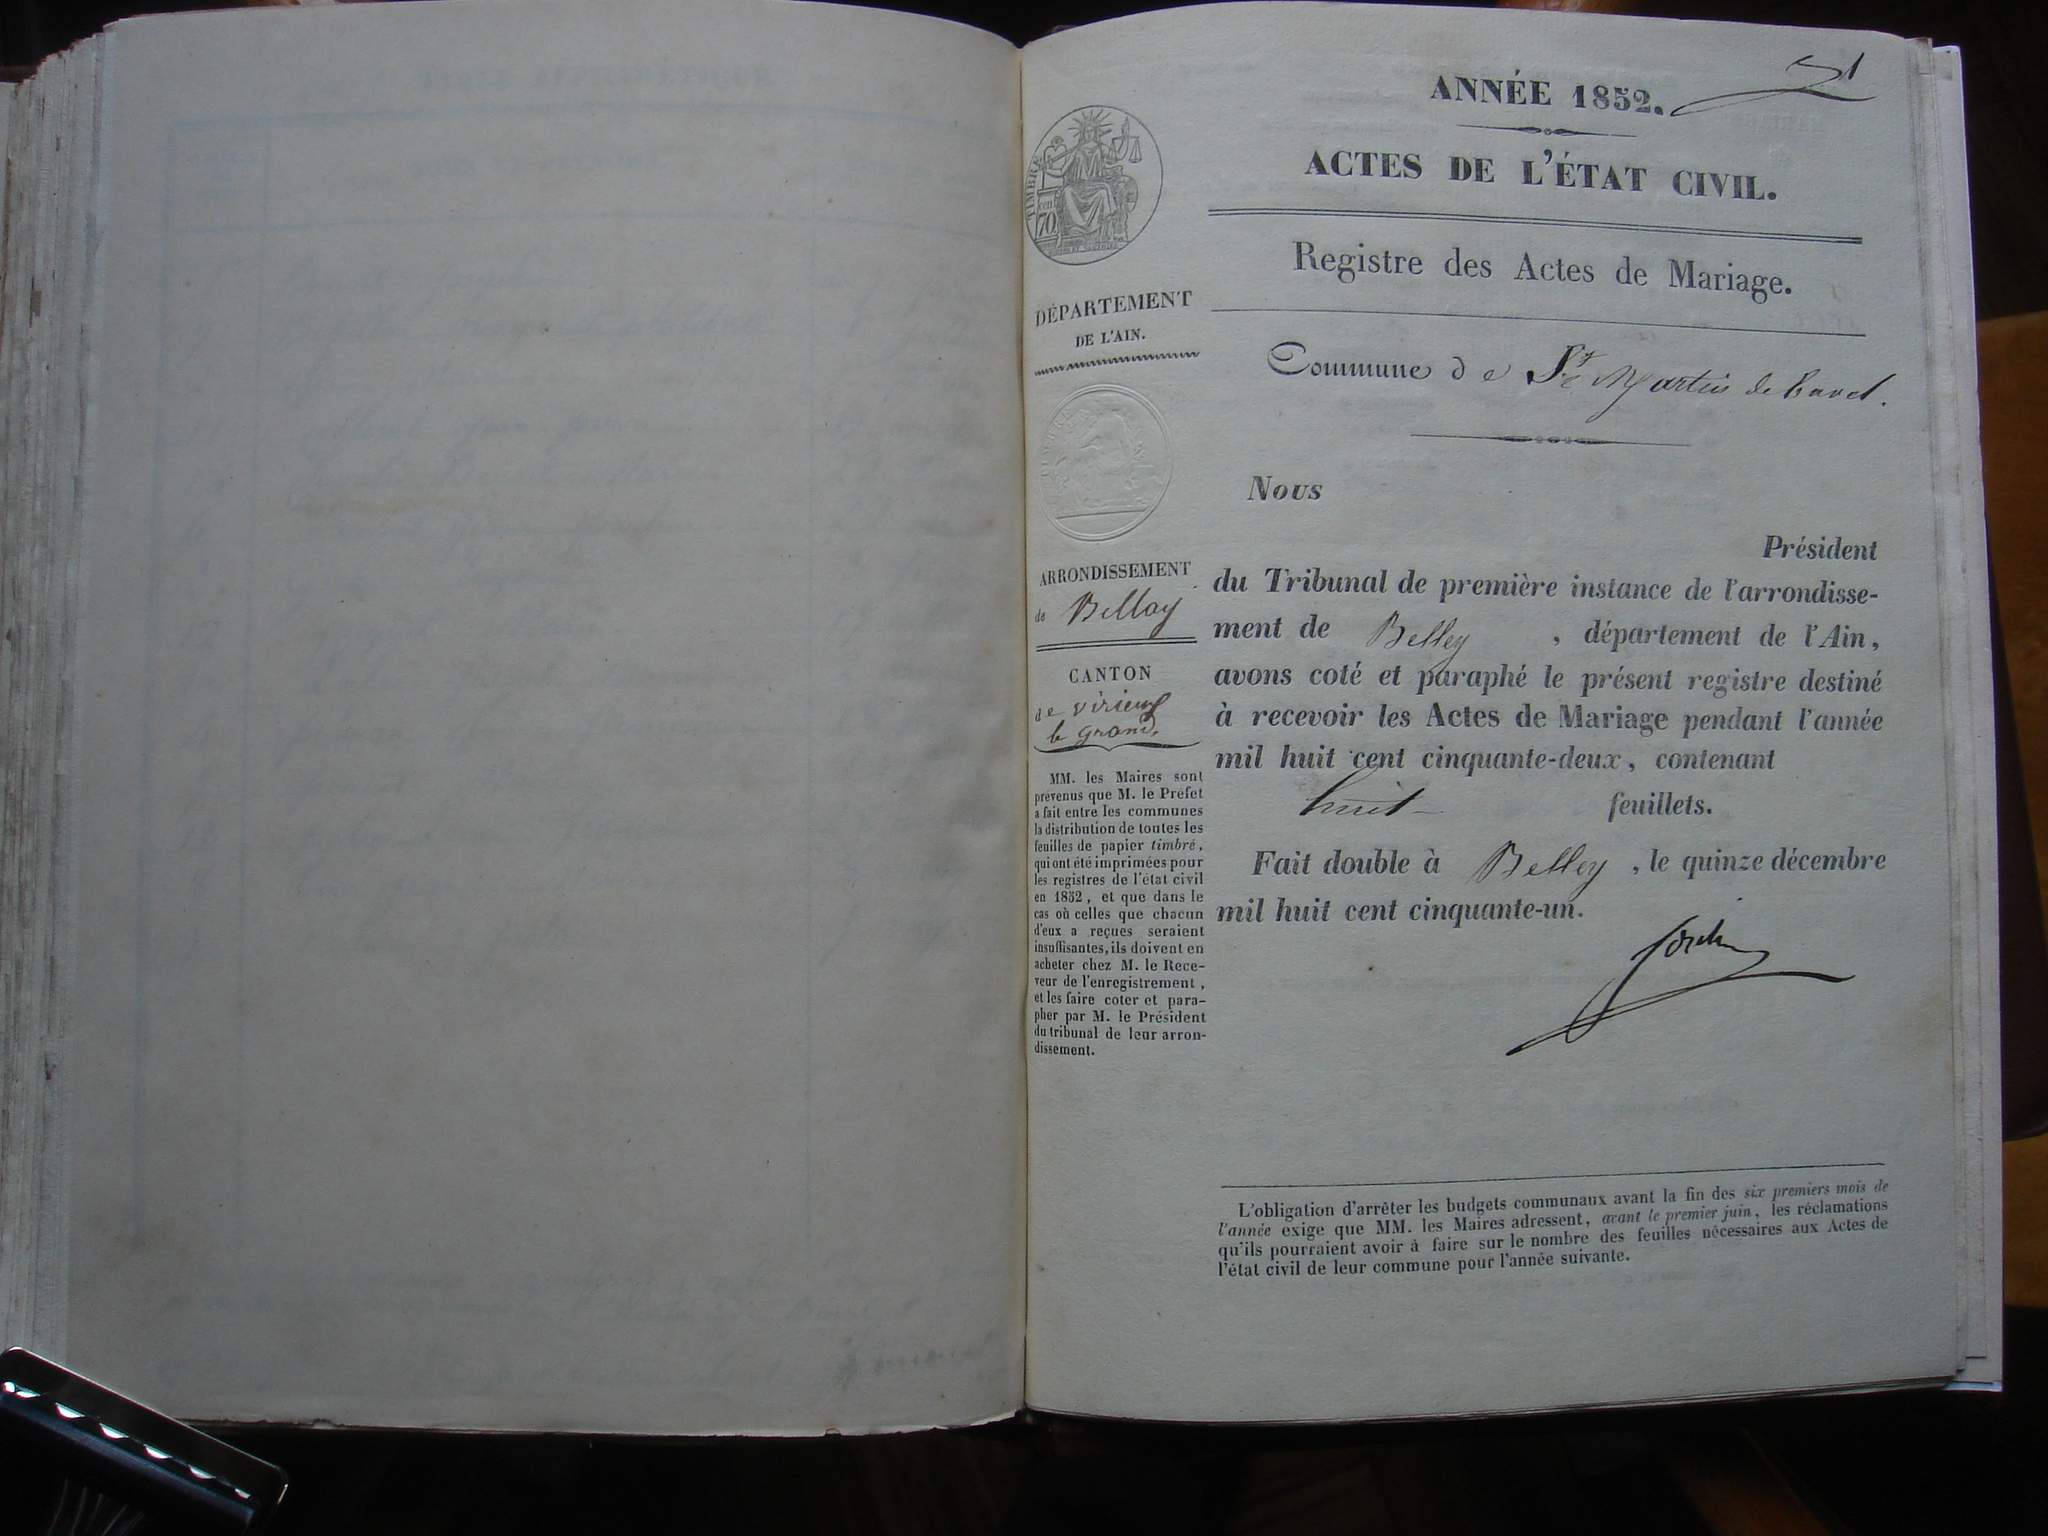 ANNÉE 1852.
ACTES DE L'ÉTAT CIVIL.
Registre des Actes de Mariage.
TIMBRE
cent
70
DÉPARTEMENT
DE L'AIN.
Commune de St Martin de Bavel.
ARRONDISSEMENT
de Belley
CANTON
de Virieu
le grand.
MM. les Maires sont
prévenus que M. le Préfet
a fait entre les communes
la distribution de toutes les
feuilles de papier timbré,
qui ont été imprimées pour
les registres de l'état civil
en 1852, et que dans le
cas où celles que chacun
d'eux a reçues seraient
insuffisantes, ils doivent en
acheter chez M. le Rece-
veur de l'enregistrement,
et les faire coter et para-
pher par M. le Président
du tribunal de leur arron-
dissement.
Nous
Président
du Tribunal de première instance de l'arrondisse-
ment de Belley, département de l'Ain,
avons coté et paraphé le présent registre destiné
à recevoir les Actes de Mariage pendant l'année
mil huit cent cinquante-deux, contenant
huit feuillets.
Fait double à Belley, le quinze décembre
mil huit cent cinquante-un.
L'obligation d'arrêter les budgets communaux avant la fin des six premiers mois de
l'année exige que MM. les Maires adressent, avant le premier juin, les réclamations
qu'ils pourraient avoir à faire sur le nombre des feuilles nécessaires aux Actes de
l'état civil de leur commune pour l'année suivante.